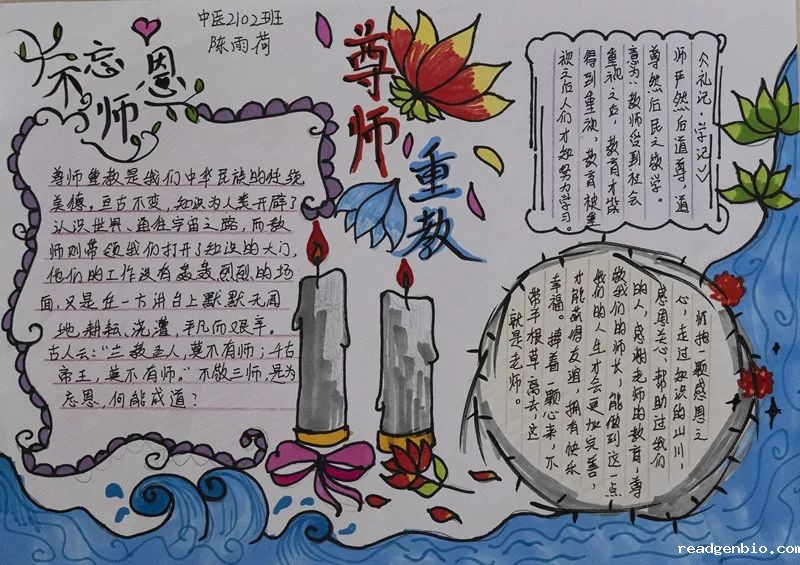 中医2102班
陈雨荷
不忘师恩
尊师
重教
尊师重教是我们中华民族的传统
美德，亘古不变，知识为人类开辟了
认识世界、通往宇宙之路，而教
师则带领我们打开了知识的大门，
他们的工作没有轰轰烈烈的场
面，又是在一方讲台上默默无闻
地耕耘、浇灌，平凡而艰辛。
古人云：“三教圣人，莫不有师；千古
帝王，莫不有师。”不敬三师，是为
忘恩，何能成道？
《礼记·学记》
师严然后道尊，道
尊然后民知敬学。
意为：教师受到社会
重视之后，教育才能
得到重视，教育被重
视之后人们才知努力学习。
颗感恩之
心，走过知识的山川，
感恩关心、帮助过我们
的人，感谢老师的教育，尊
敬我们的师长，能做到这一点
我们的人生才会更加完善，
才能赢得友谊，拥有快乐
幸福。捧着一颗心来，不
带半根草离去，这
就是老师。
readgenbio.com